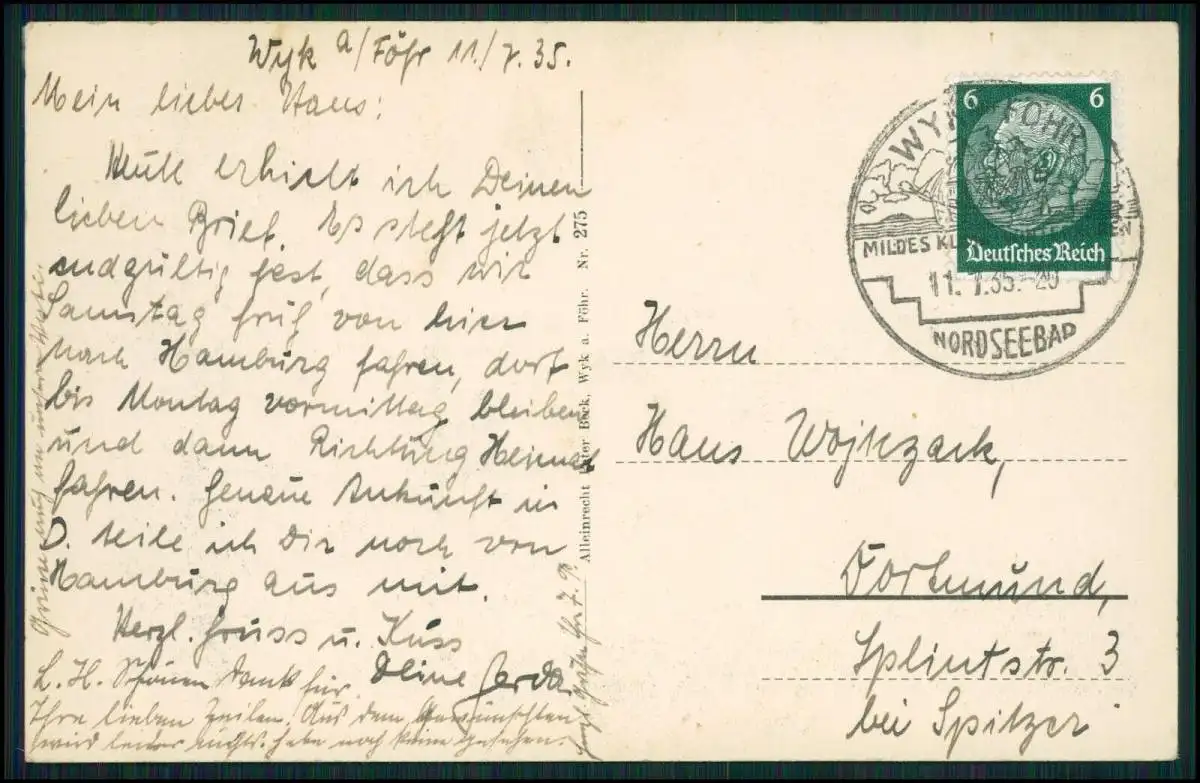 Wyk a/Föhr 11/7.35.
Mein lieber Hans:
Heute erhielt ich Deinen
lieben Brief. Es steht jetzt
endgültig fest, dass wir
Samstag früh von hier
nach Hamburg fahren, dort
bis Montag vormittag bleiben
und dann Richtung Heimat
fahren. Genaue Ankunft in
D. teile ich Dir noch von
Hamburg aus mit.
Herzl. Gruss u. Kuss
Deine Gerda.
L. H. Schönen Dank für
Ihre lieben Zeilen. Aus dem Gewünschten
wird leider nichts. habe noch keine gesehen.
Alleinrecht Beck, Wyk a. Föhr. Nr. 275
6 6
Deutsches Reich
WYK FÖHR
MILDES
11. 7.35.-20
NORDSEEBAD
Herrn
Hans Wojnzack,
Dortmund,
Splintstr. 3
bei Spitzer